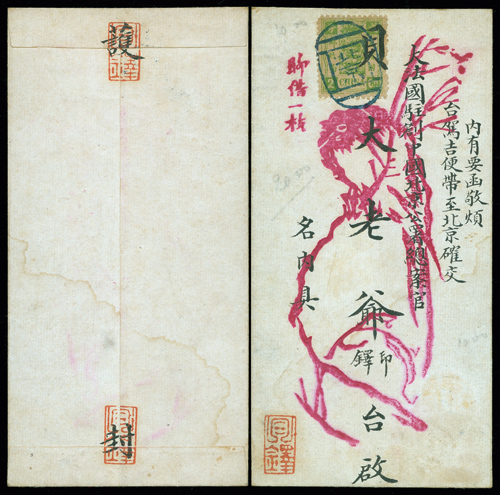 護
封
内有要函敬煩
台駕吉便帶至北京確交
大法國駐劄中國北京公署總叅官
貝大老爺印鐸台啟
聊借一枝
名内具
貝鐸